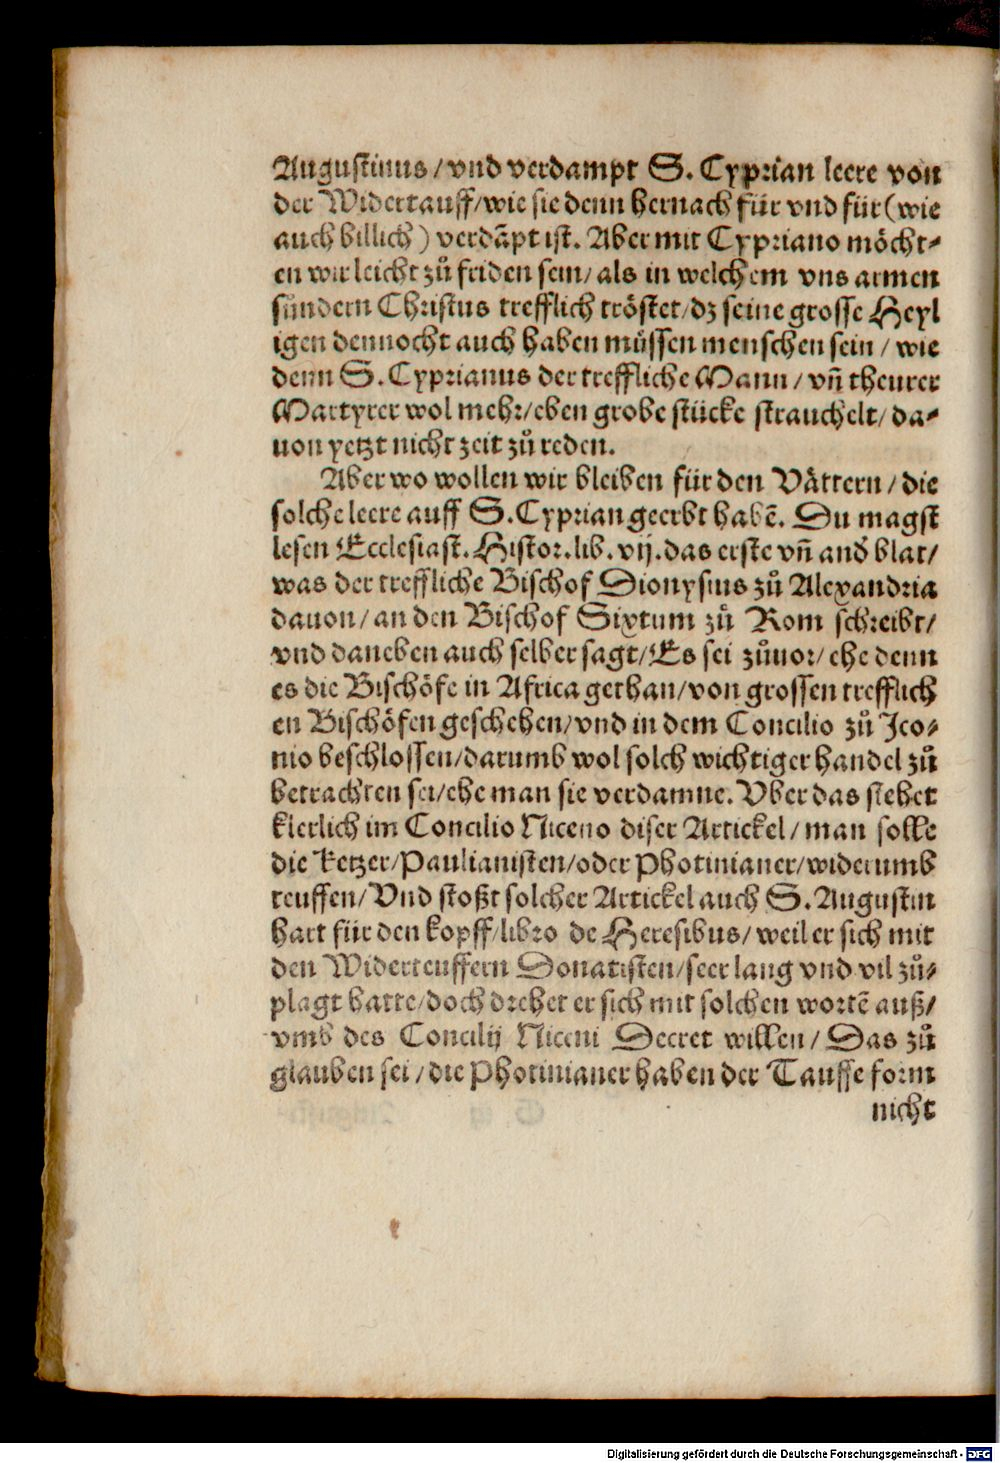 Augustinus / vnd verdampt S. Cyprian leere von
der Widertauff / wie sie denn hernach für vnd für (wie
auch billich) verdãpt ist. Aber mit Cypriano möcht-
en wir leicht zů friden sein / als in welchem vns armen
sündern Christus trefflich tröstet / dz seine grosse Heyl
igen dennocht auch haben müssen menschen sein / wie
denn S. Cyprianus der treffliche Mann / vñ theurer
Martyrer wol mehr / eben grobe stücke strauchelt / da-
uon yetzt nicht zeit zů reden.
Aber wo wollen wir bleiben für den Vättern / die
solche leere auff S. Cyprian geerbt habẽ. Du magst
lesen Ecclesiast. Histor. lib. vij. das erste vñ and' blat /
was der treffliche Bischof Dionysius zů Alexandria
dauon / an den Bischof Sixtum zů Rom schreibt /
vnd daneben auch selber sagt / Es sei zůuor / ehe denn
es die Bischöfe in Africa gethan / von grossen trefflich
en Bischöfen geschehen / vnd in dem Concilio zů Ico-
nio beschlossen / darumb wol solch wichtiger handel zů
betrachten sei / ehe man sie verdamne. Vber das stehet
klerlich im Concilio Niceno diser Artickel / man solle
die Ketzer / Paulianisten / oder Photinianer / widerumb
teuffen / Vnd stoßt solcher Artickel auch S. Augustin
hart für den kopff / libro de Heresibus / weil er sich mit
den Widerteuffern Donatisten / seer lang vnd vil zů-
plagt hatte / doch drehet er sich mit solchen wortẽ auß /
vmb des Concilij Niceni Decret willen / Das zů
glauben sei / die Photinianer haben der Tauffe form
nicht
Digitalisierung gefördert durch die Deutsche Forschungsgemeinschaft - DFG